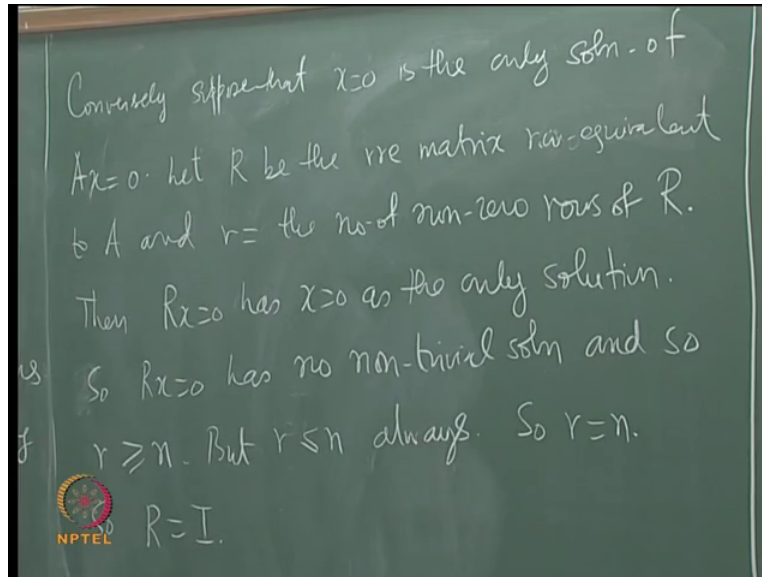 Conversely suppose that x=0 is the only soln. of
Ax=0. Let R be the rre matrix row-equivalent
to A and r= the no. of non-zero rows of R.
Then Rx=0 has x=0 as the only solution.
us So Rx=0 has no non-trivial soln and so
r ≥ n. But r ≤ n always. So r=n.
So R=I.
NPTEL